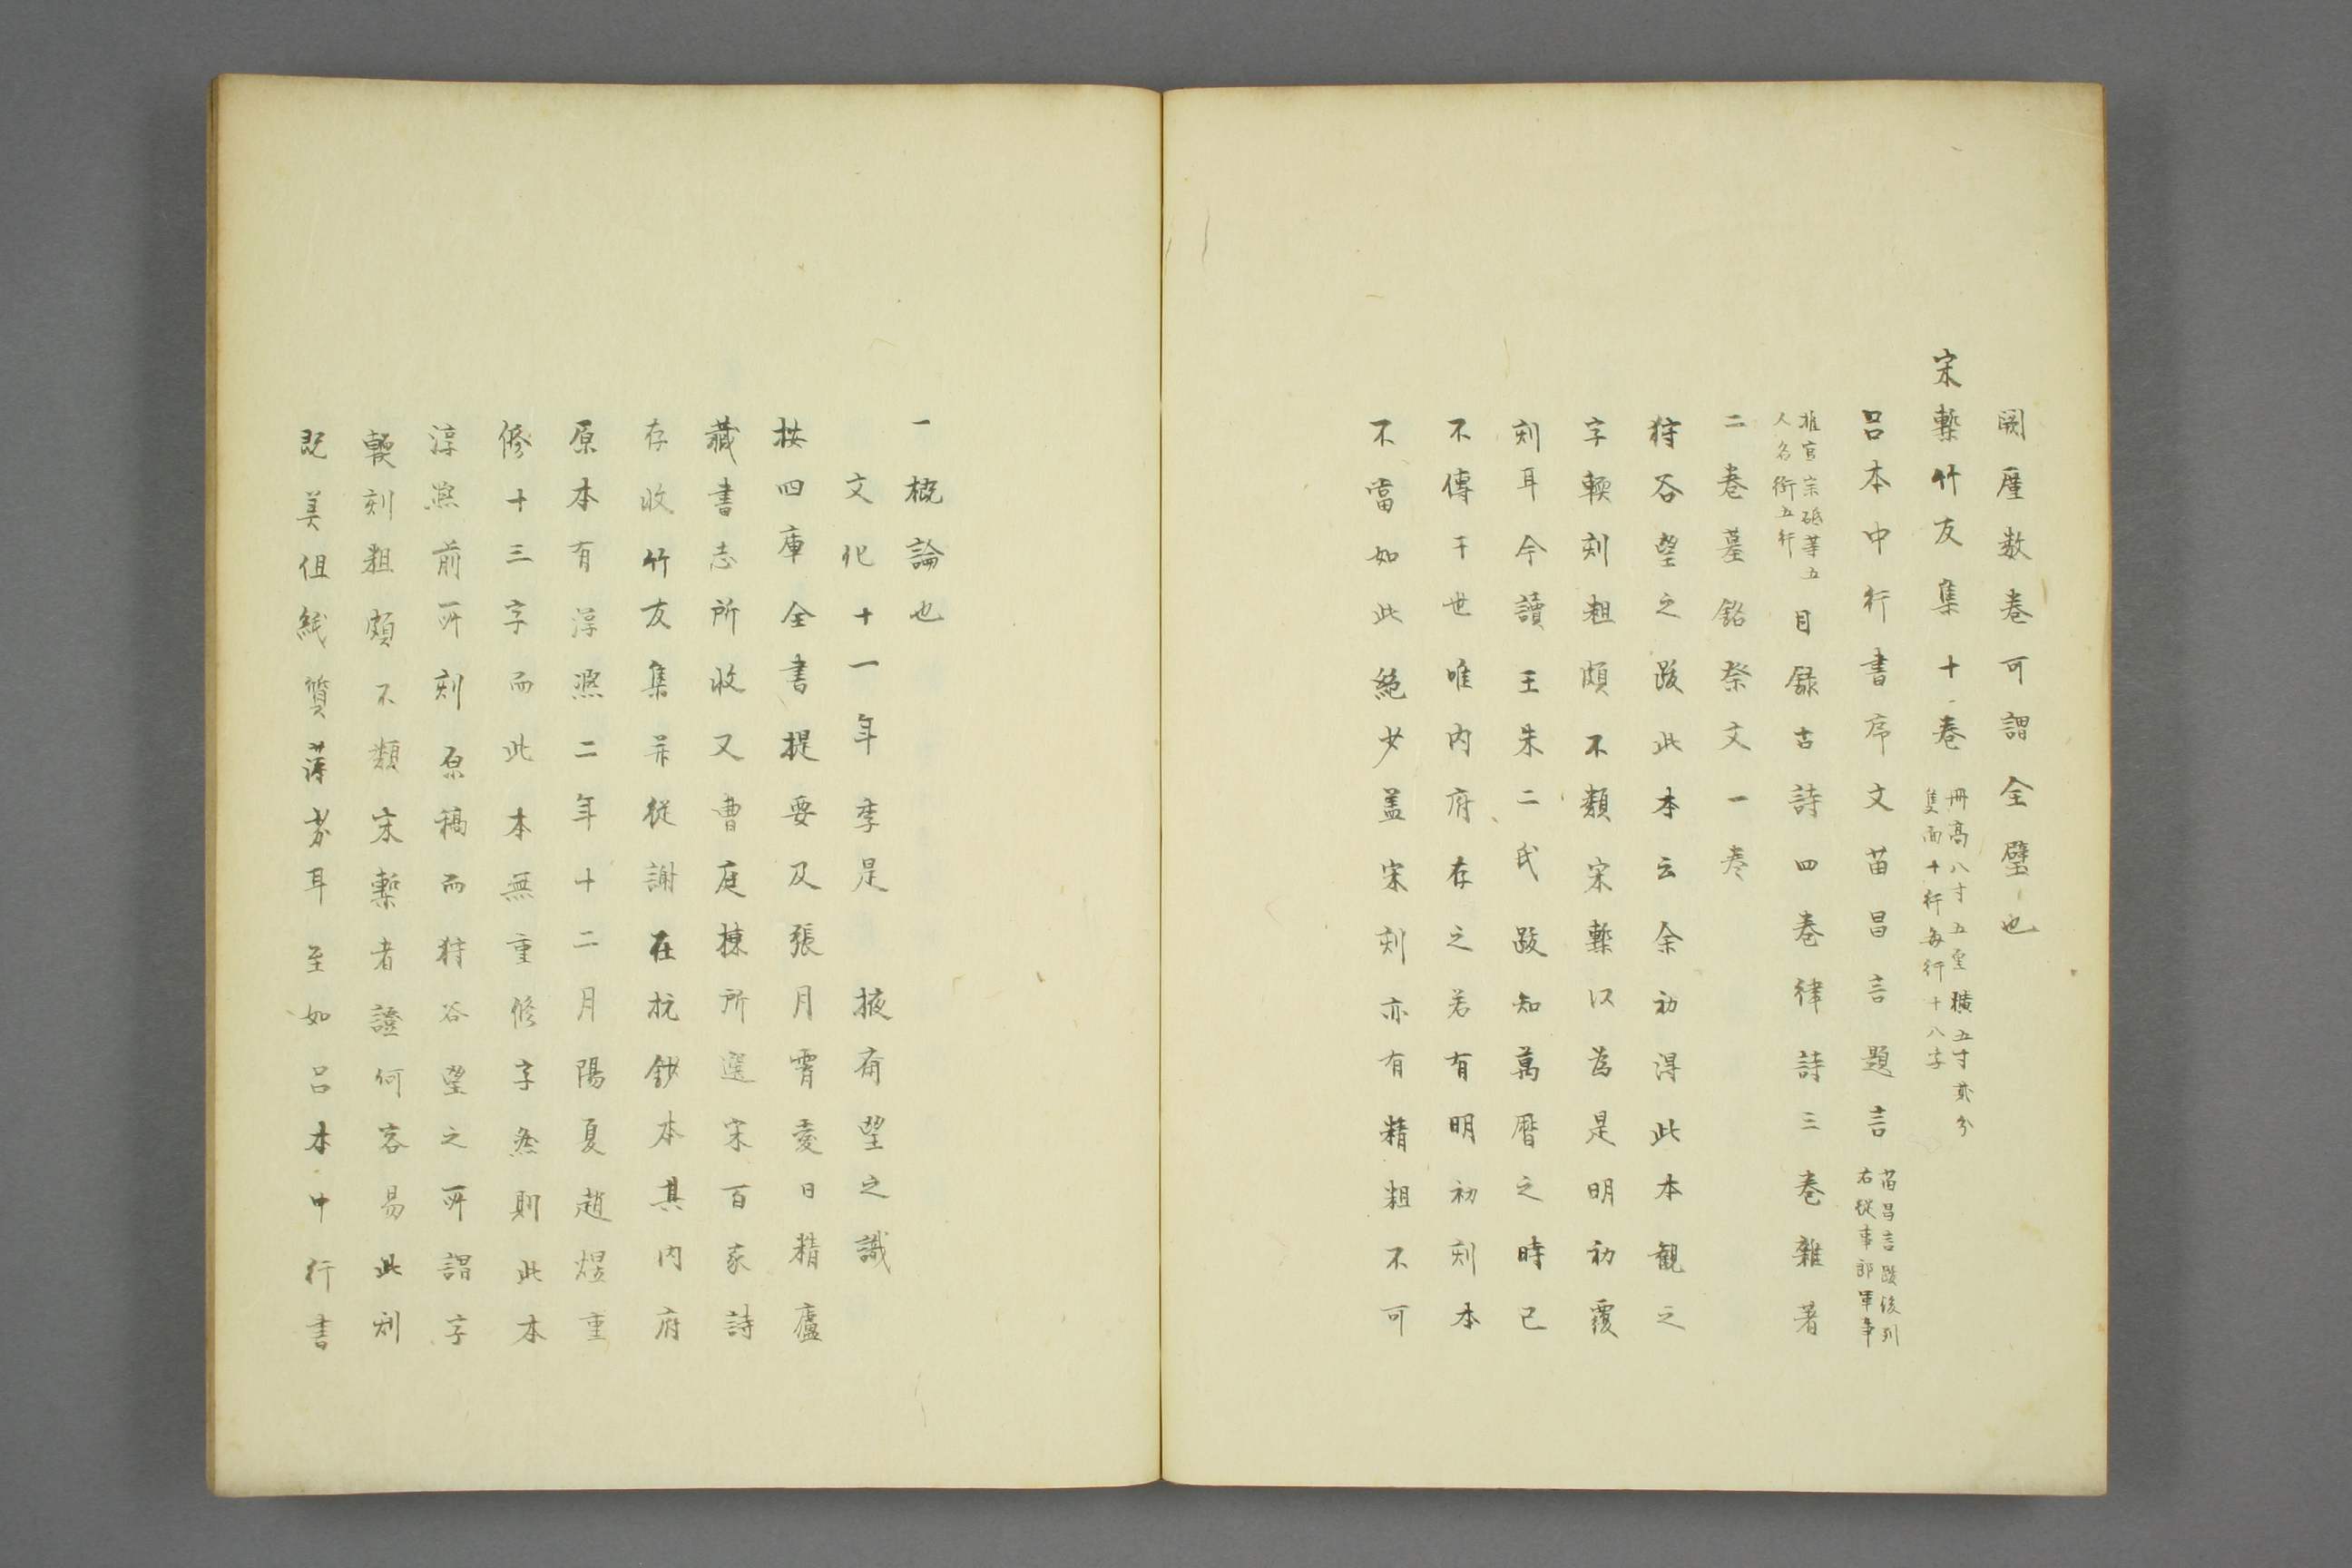 闕厪数巻可謂全璧也
宋槧竹友集十巻
冊高八寸五厘横五寸貳分
隻面十行每行十八字
呂本中行書序文苗昌言題言
苗昌言跋後列
右從事郎軍事
推官宗砥等五
人名銜五行
目録古詩四巻律詩三巻雜著
二巻墓銘祭文一巻
狩谷望之跋此本云余初淂此本観之
字輭刻粗頗不類宋槧以為是明初覆
刻耳今讀王朱二氏跋知萬暦之時已
不傳于世唯内府存之若有明初刻本
不當如此絶少盖宋刻亦有精粗不可
一概論也
文化十一年季是掖斎望之識
按四庫全書提要及張月霄愛日精廬
藏書志所收又曹庭棟所選宋百家詩
存收竹友集并從謝在杭鈔本其内府
原本有淳熙二年十二月陽夏趙煜重
修十三字而此本無重修字然則此本
淳熙前所刻原稿而狩谷望之所謂字
輭刻粗頗不類宋槧者證何容易此刻
既美但紙質薄劣耳至如呂本中行書